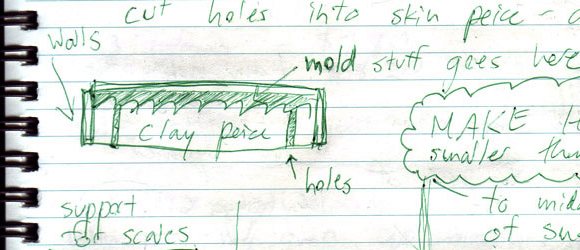 cut holes into skin peice -
walls
mold stuff goes here
clay peice
MAKE H
smaller the
holes
to mid
support
for scales
of su